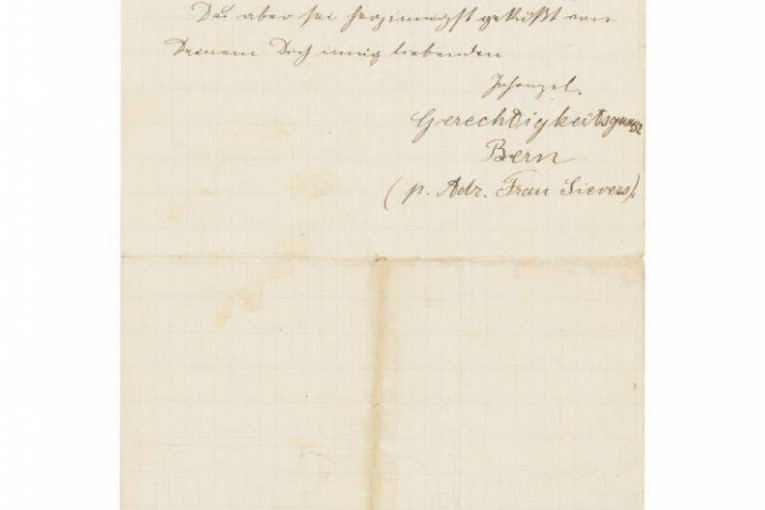 Du aber sei herzinnigst geküßt von
Deinem Dich innig liebenden
Johonzel.
Gerechtigkeitsgasse 32
Bern
(p. Adr. Frau Sievers).